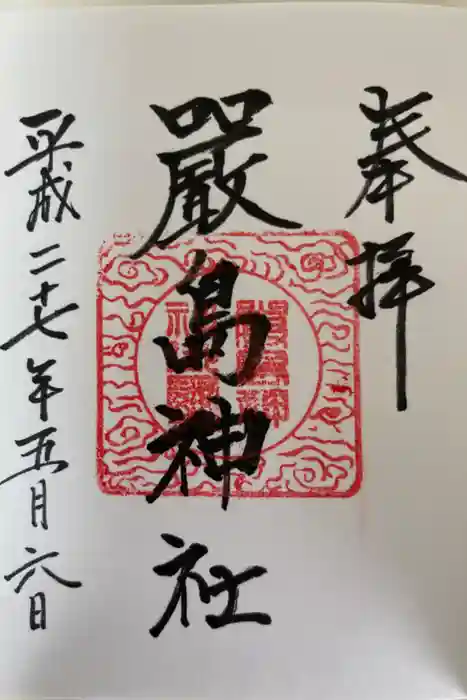 奉拝
嚴島神社
平成二十七年五月六日